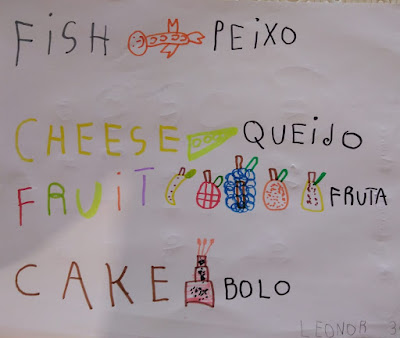 FiSH PEiXO
CHEESE QUEiJO
FRUiT FRUTA
CAKE BOLO
LEONOR 3